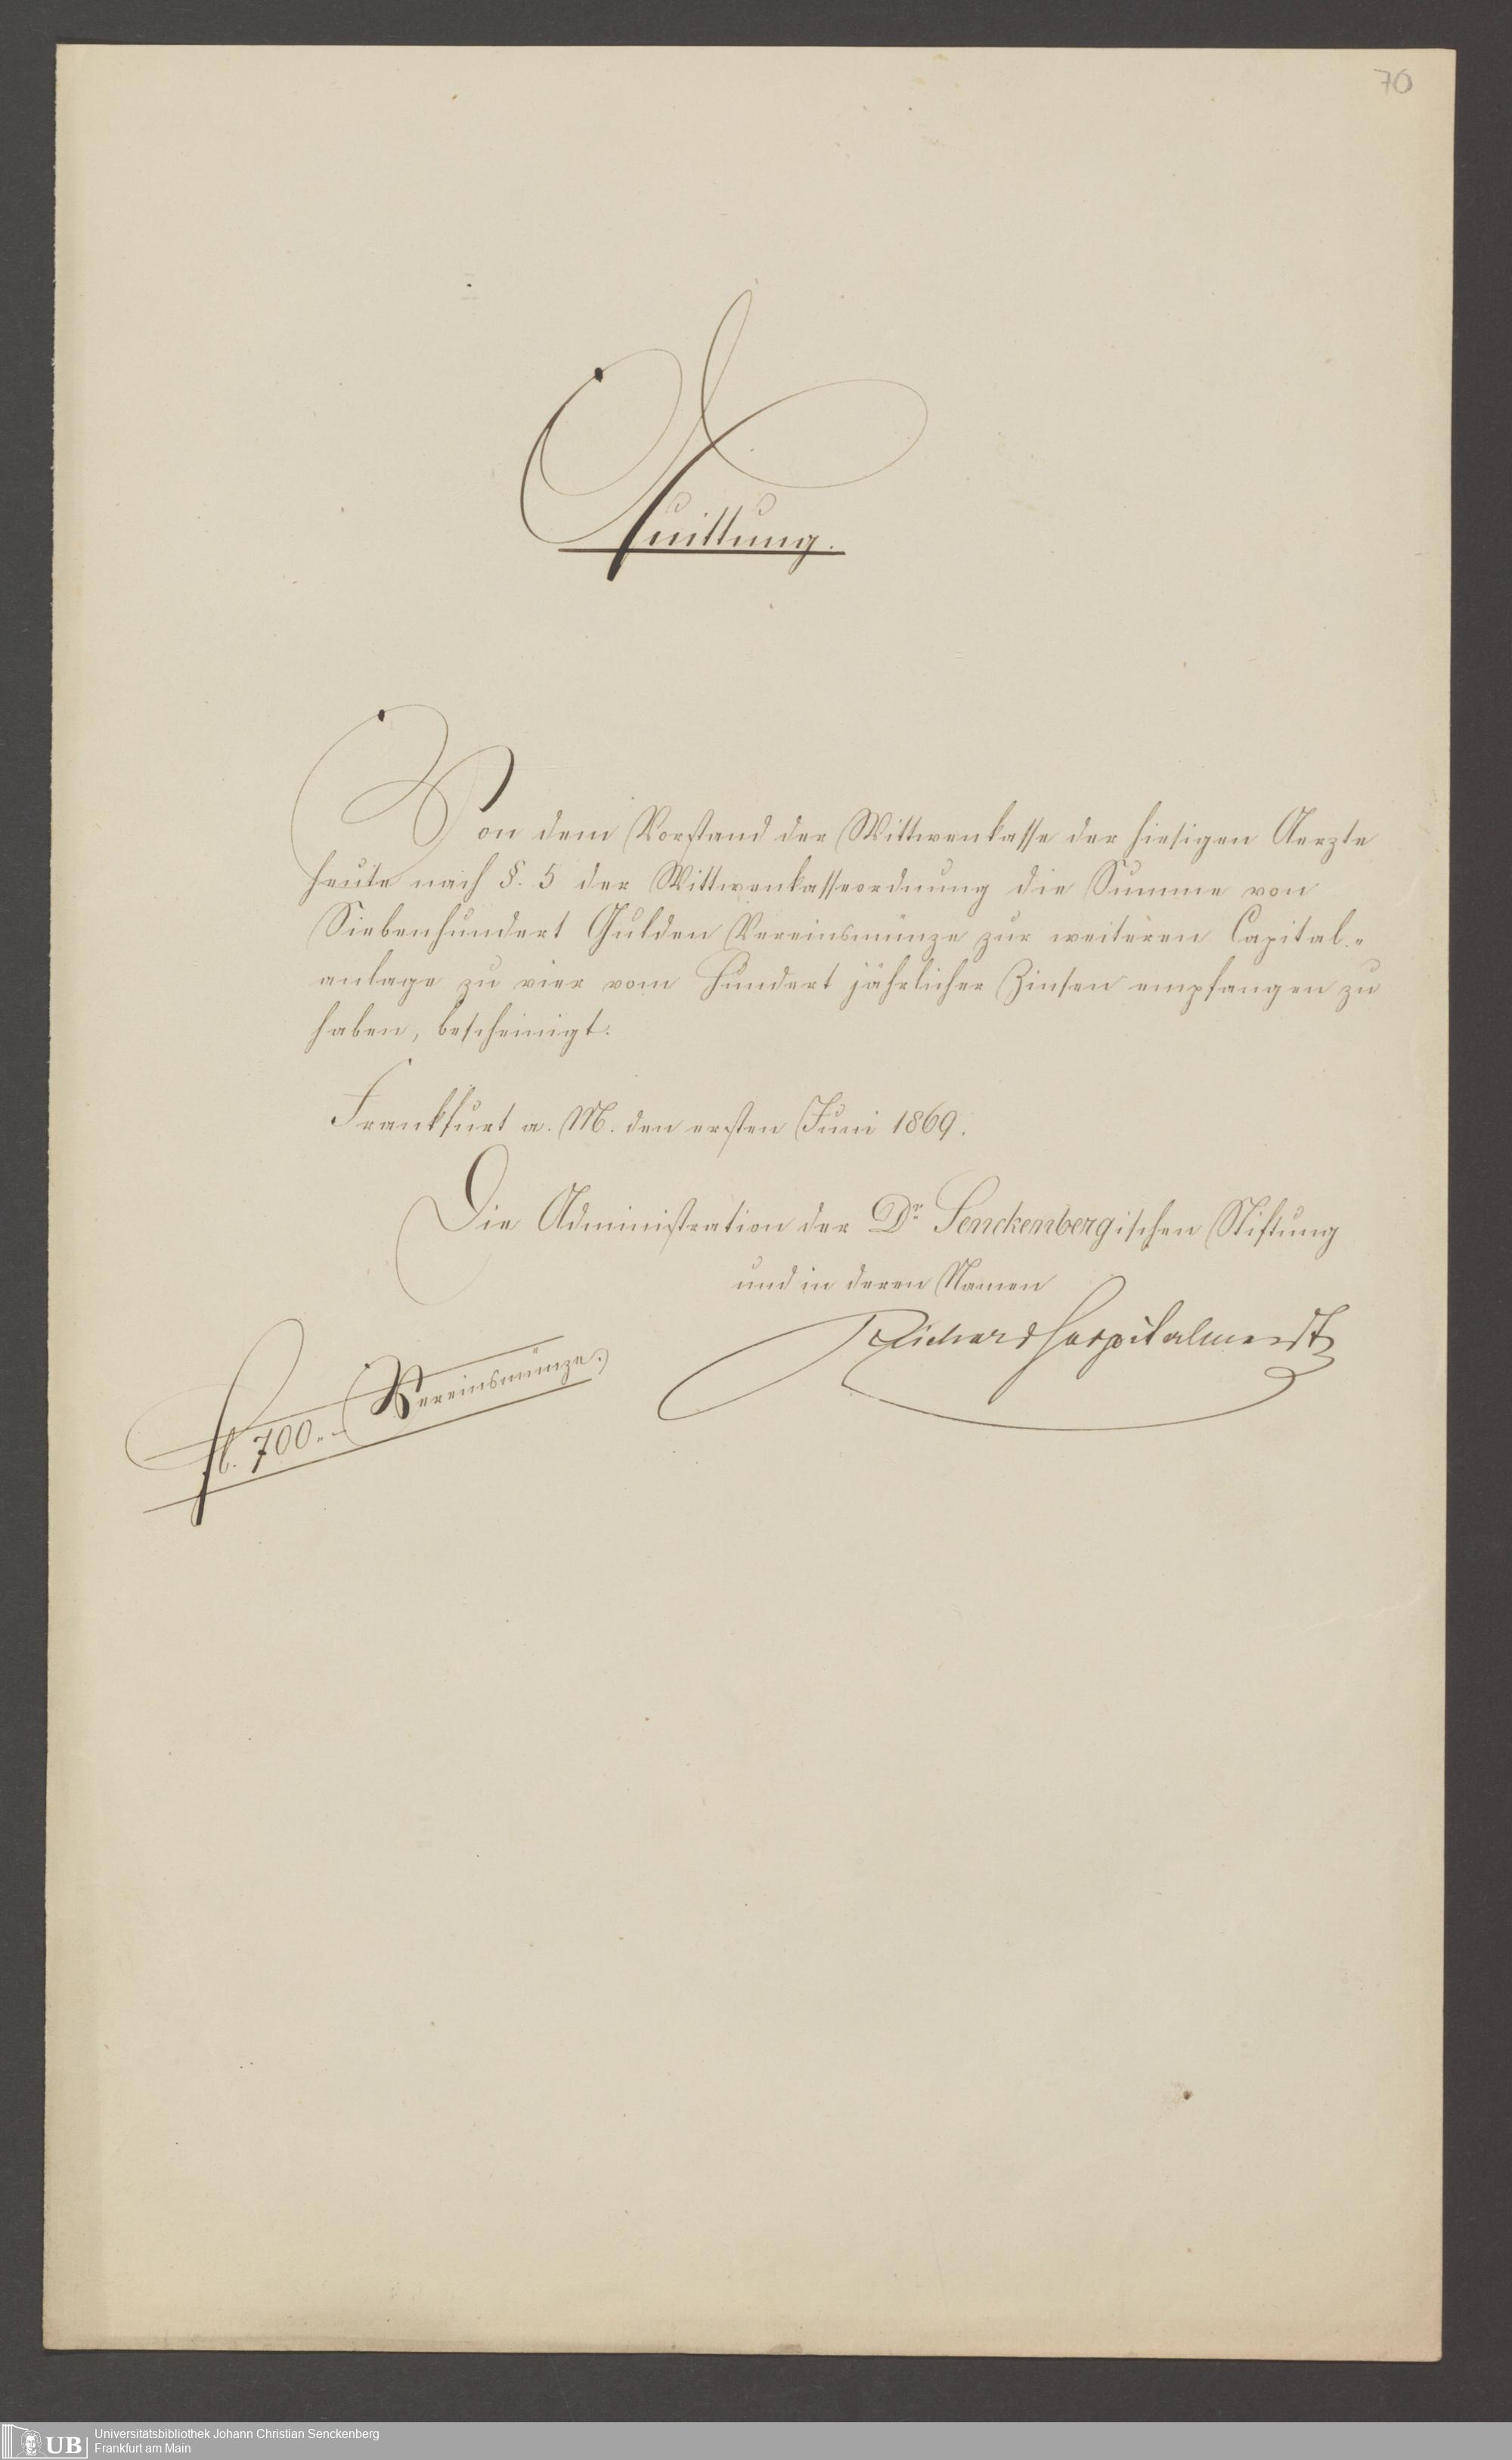 70
Quittung.
Von dem Vorstand der Wittwenkasse der hiesigen Aerzte
heute nach §. 5 der Wittwenkasseordnung die Summe von
Siebenhundert Gulden Vereinsmünze zur weiteren Capital-
anlage zu vier vom Hundert jährlicher Zinsen empfangen zu
haben, bescheinigt.
Frankfurt a. M. den ersten Juni 1869.
Die Administration der Dr. Senckenbergischen Stiftung
und in deren Namen
Richard Hospitalmeister
fl. 700.- (Vereinsmünze.)
UB
Universitätsbibliothek Johann Christian Senckenberg
Frankfurt am Main